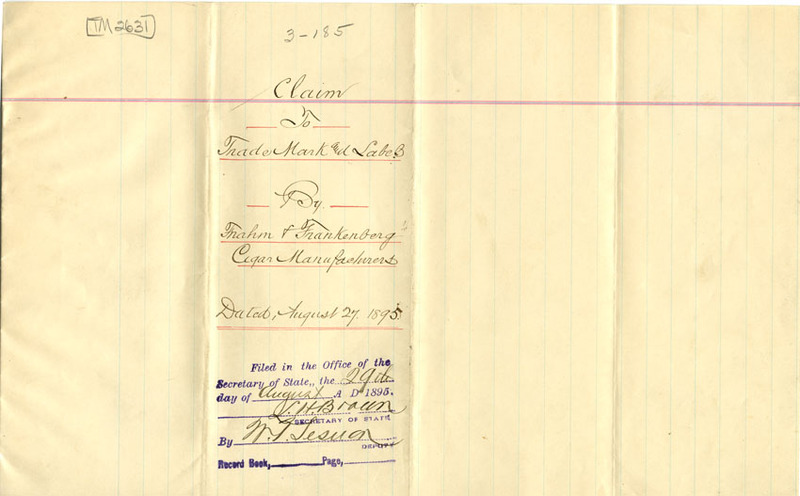 TM 2631
3-185
Claim
To
Trade Mark and Labels
By
Frahm & Frankenberg
Cigar Manufacturers
Dated, August 27. 1895.
Filed in the Office of the
Secretary of State, the 29th
day of August A D 1895.
Brown
SECRETARY OF STATE
By
DEPUTY
Record Book, Page,